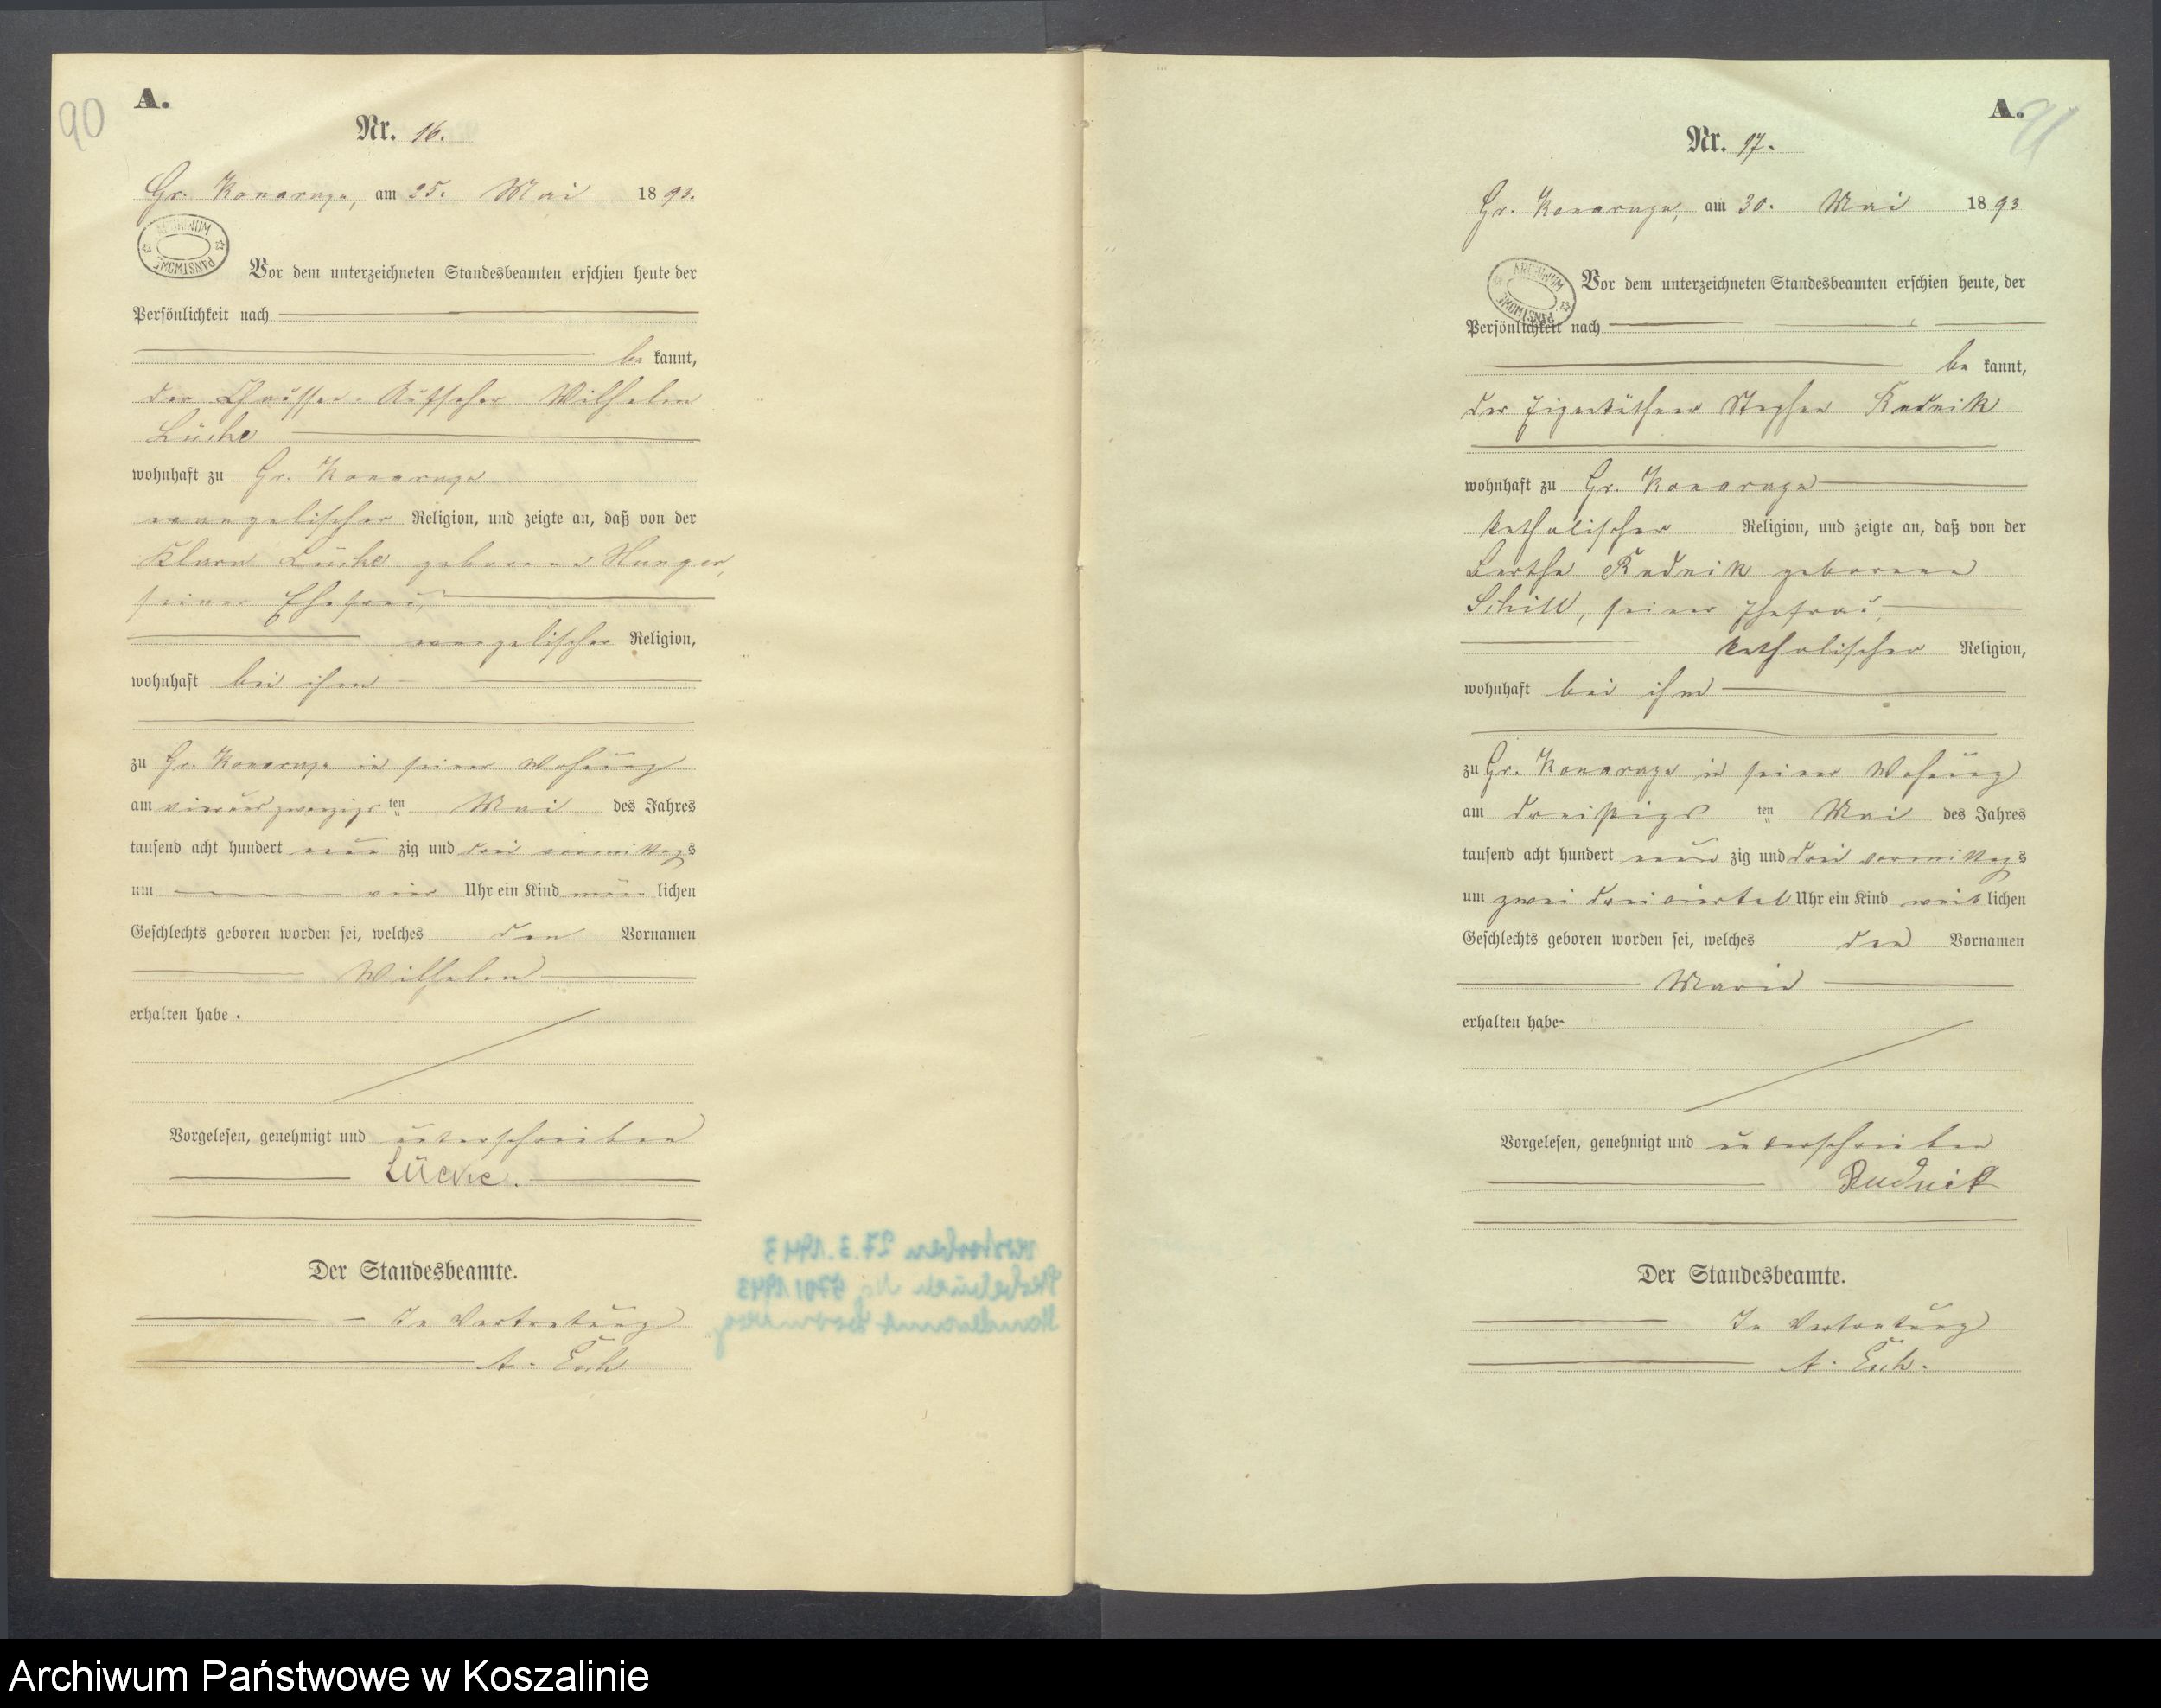 90
A.
Nr. 16.
Gr. Konarczyn, am 25. Mai 1893.
ARCHIWUM PAŃSTWOWE
Vor dem unterzeichneten Standesbeamten erschien heute der
Persönlichkeit nach
be kannt,
der Chaussee-Aufseher Wilhelm
Lücke
wohnhaft zu Gr.
evangelischer Religion, und zeigte an, daß von der
Klara Lücke geborene Hunger,
seiner Ehefrau,
evangelischer Religion,
wohnhaft bei ihm
zu Gr. in seiner Wohnung
am vierundzwanzigsten Mai des Jahres
tausend acht hundert neun zig und drei vormittags
um vier Uhr ein Kind männ lichen
Geschlechts geboren worden sei, welches den Vornamen
Wilhelm
erhalten habe.
Vorgelesen, genehmigt und unterschrieben
Lücke.
Der Standesbeamte.
In Vertretung
A.
verstorben 27.3.1943
1943
Standesamt
A.
91
Nr. 17.
Gr. am 30. Mai 1893
ARCHIWUM PAŃSTWOWE
Vor dem unterzeichneten Standesbeamten erschien heute, der
Persönlichkeit nach
be kannt,
der Eigenkäthner Stephan Rudnik
wohnhaft zu Gr.
katholischer Religion, und zeigte an, daß von der
Bertha Rudnik geborene
Schill, seiner Ehefrau,
katholischer Religion,
wohnhaft bei ihm
zu Gr. in seiner Wohnung
am dreißigs ten Mai des Jahres
tausend acht hundert neun zig und drei vormittags
um zwei dreiviertel Uhr ein Kind weib lichen
Geschlechts geboren worden sei, welches den Vornamen
Marie
erhalten habe.
Vorgelesen, genehmigt und unterschrieben
Rudnik
Der Standesbeamte.
In Vertretung
A.
Archiwum Państwowe w Koszalinie